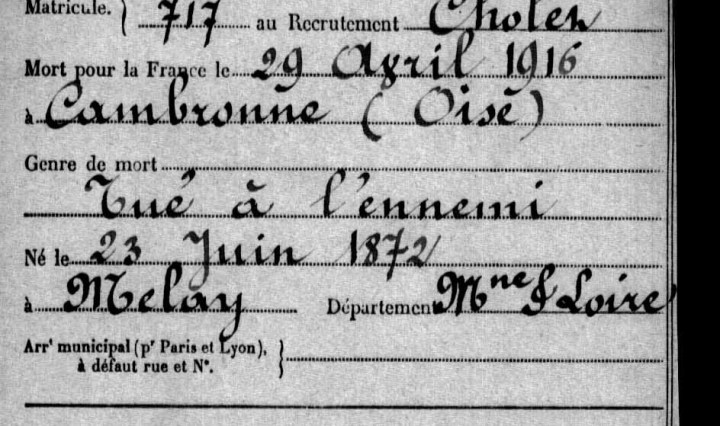 Matricule. 717 au Recrutement Cholet
Mort pour la France le 29 Avril 1916
à Cambronne (Oise)
Genre de mort
Tué à l'ennemi
Né le 23 Juin 1872
à Melay Département Mne & Loire
Arrt municipal (pr Paris et Lyon),
à défaut rue et N°.